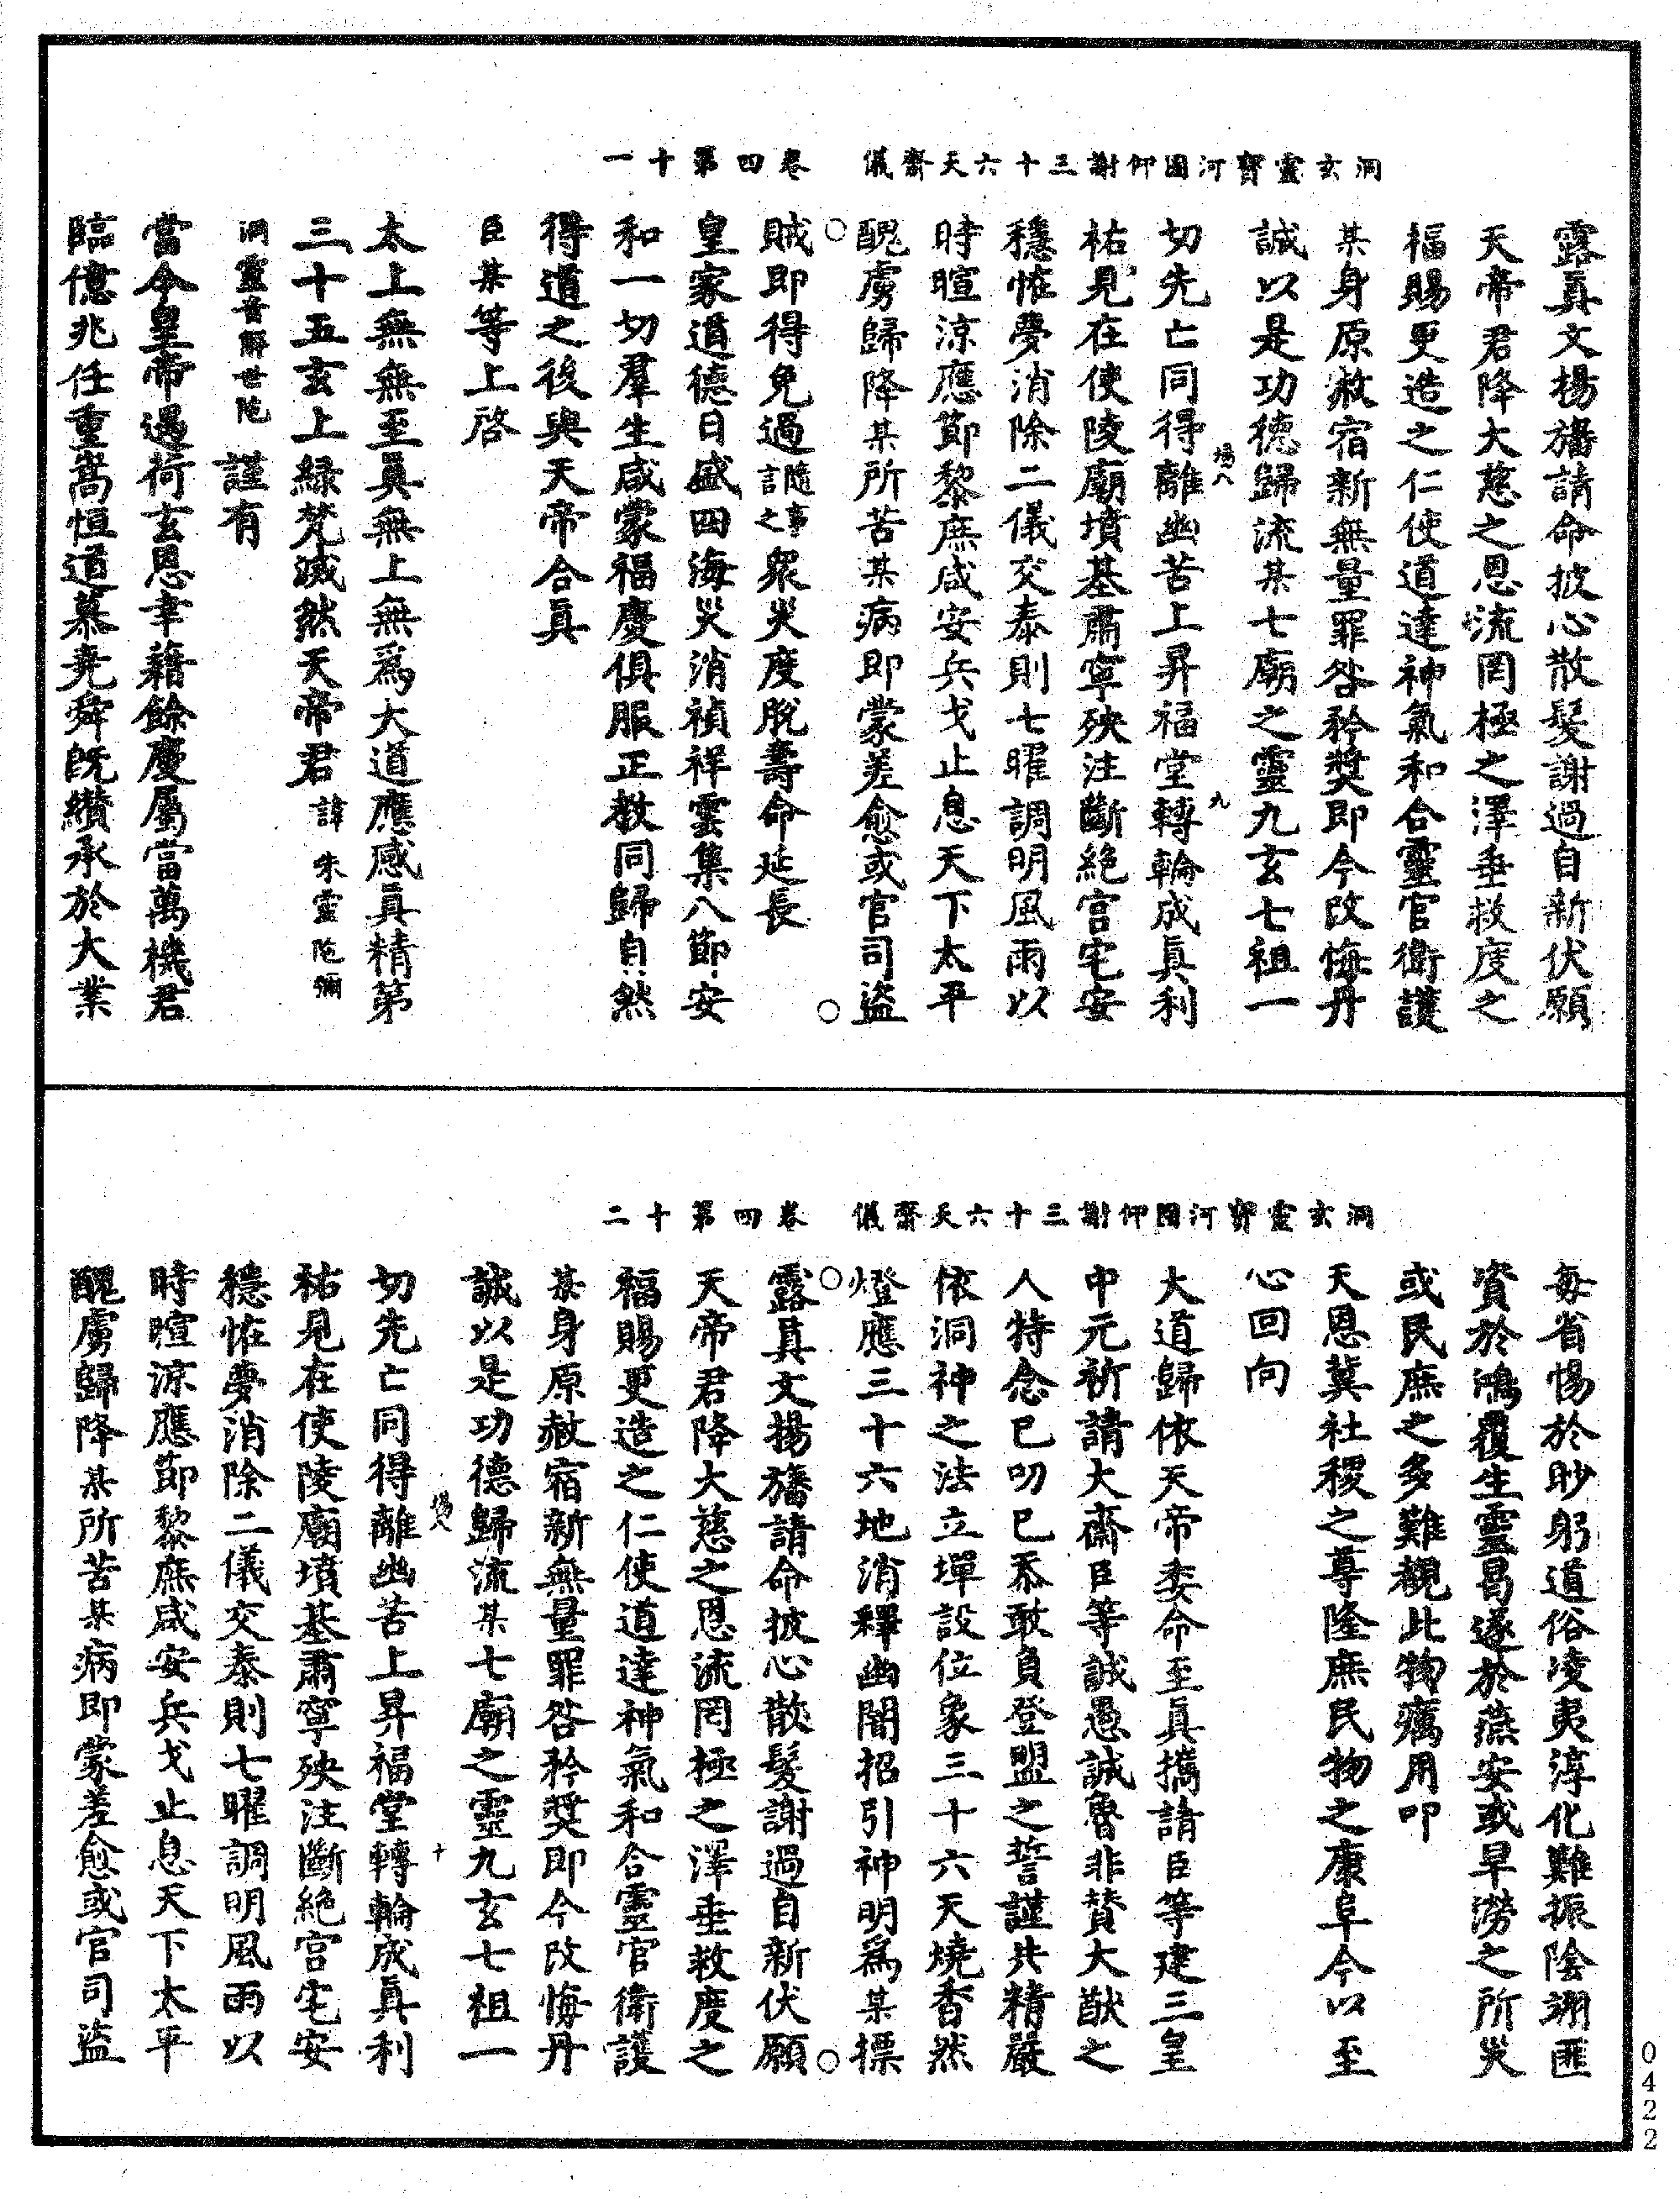 洞玄靈寶河圖仰謝三十六天齋儀　卷四第十一
露眞文揚旛請命披心散髮謝過自新伏願
天帝君降大慈之恩流罔極之澤垂救度之
福賜更造之仁使道達神氣和合靈官衛護
某身原赦宿新無量罪咎矜獎即今改悔丹
誠以是功德歸流某七廟之靈九玄七祖一
場八　九
切先亡同得離幽苦上昇福堂轉輪成眞利
祐見在使陵廟墳基肅寧殃注斷絕宫宅安
穩怪夢消除二儀交泰則七曜調明風雨以
時暄涼應節黎庶咸安兵戈止息天下太平
醜虜歸降某所苦某病即蒙差愈或官司盜
賊即得免過隨事言之衆災度脫壽命延長
皇家道德日盛四海災消禎祥雲集八節安
和一切羣生咸蒙福慶俱服正教同歸自然
得道之後與天帝合眞
臣某等上啓
太上無無至眞無上無爲大道應感眞精第
三十五玄上緑梵滅然天帝君諱朱靈陁彌
洞靈音醳世陁謹有
當今皇帝遇荷玄恩幸藉餘慶屬當萬機君
臨億兆任重嵩恒道慕堯舜旣纘承於大業
洞玄靈寶河圖仰謝三十六天齋儀　卷四第十二
每省惕於眇躬道俗凌夷淳化難振陰翊匪
資於鴻覆生靈曷遂於燕安或旱澇之所災
或民庶之多難覩此物癘用叩
天恩冀社稷之尊隆庶民物之康阜今以至
心回向
大道歸依天帝委命至眞攜請臣等建三皇
中元祈請大齋臣等誠愚誠魯非賛大猷之
人特念已叨已忝敢負登盟之誓謹共精嚴
依洞神之法立墠設位象三十六天燒香然
燈應三十六地消釋幽闇招引神明爲某摽
露眞文揚旛請命披心散髮謝過自新伏願
天帝君降大慈之恩流罔極之澤垂救度之
福賜更造之仁使道達神氣和合靈官衛護
某身原赦宿新無量罪咎矜獎即今改悔丹
誠以是功德歸流某七廟之靈九玄七祖一
場八　十
切先亡同得離幽苦上昇福堂轉輪成眞利
祐見在使陵廟墳基肅寧殃注斷絕宫宅安
穩怪夢消除二儀交泰則七曜調明風雨以
時暄涼應節黎庶咸安兵戈止息天下太平
醜虜歸降某所苦某病即蒙差愈或官司盜
0422